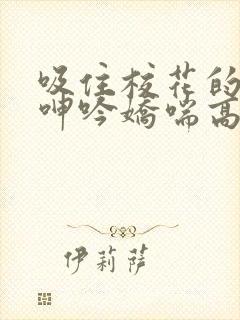 吸住校花的
呻吟娇喘高
伊莉萨